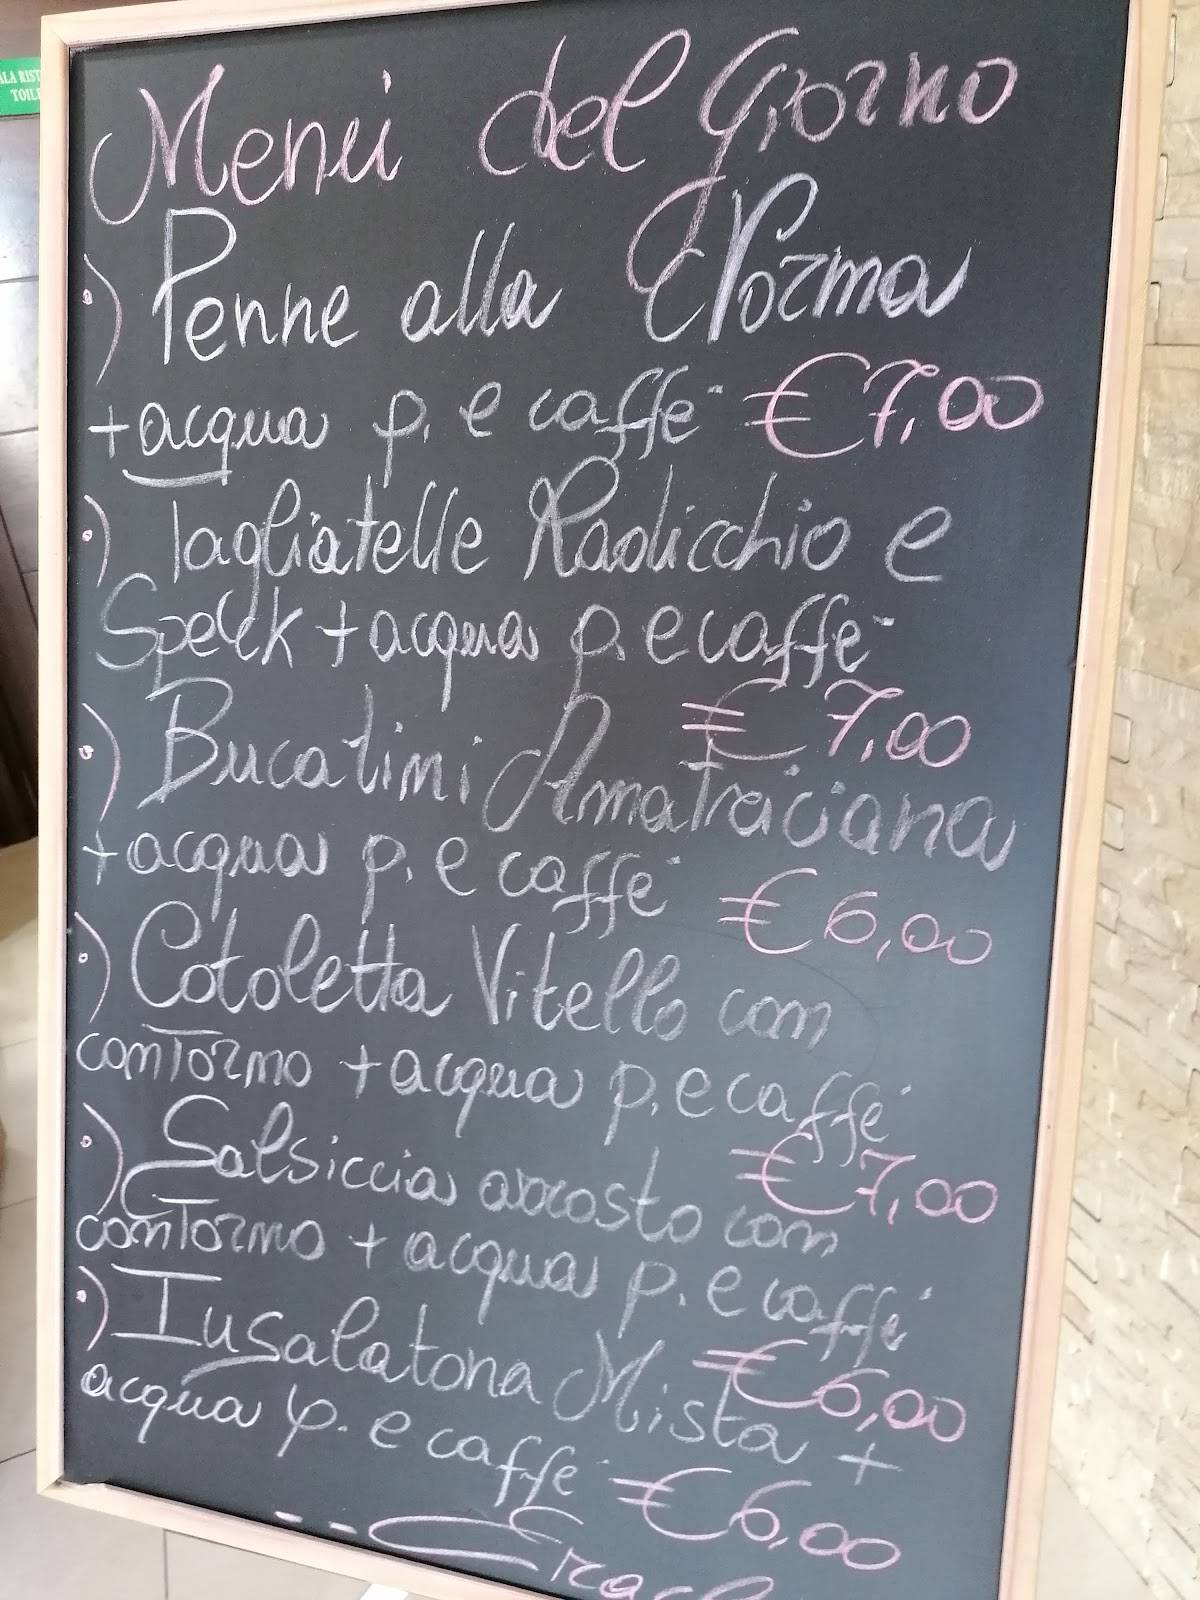 TOILE
Menù del Giorno
•) Penne alla Norma
+ acqua p. e caffè € 7,00
•) Tagliatelle Radicchio e
Speck + acqua p. e caffè
€ 7,00
•) Bucatini Amatraciana
+ acqua p. e caffè € 6,00
•) Cotoletta Vitello con
contorno + acqua p. e caffè
€ 7,00
•) Salsiccia arrosto con
contorno + acqua p. e caffè
€ 6,00
•) Insalatona Mista +
acqua p. e caffè € 6,00